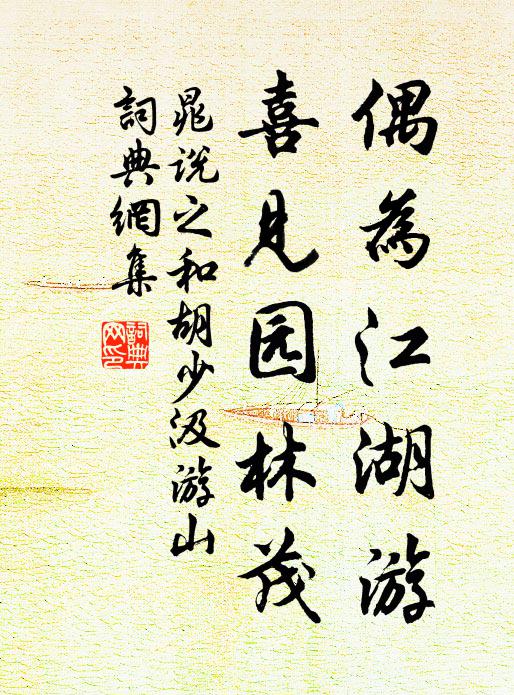 偶為江湖游
喜見园林茂
晁说之和胡少汲游山
詞典網集
詞典
网印